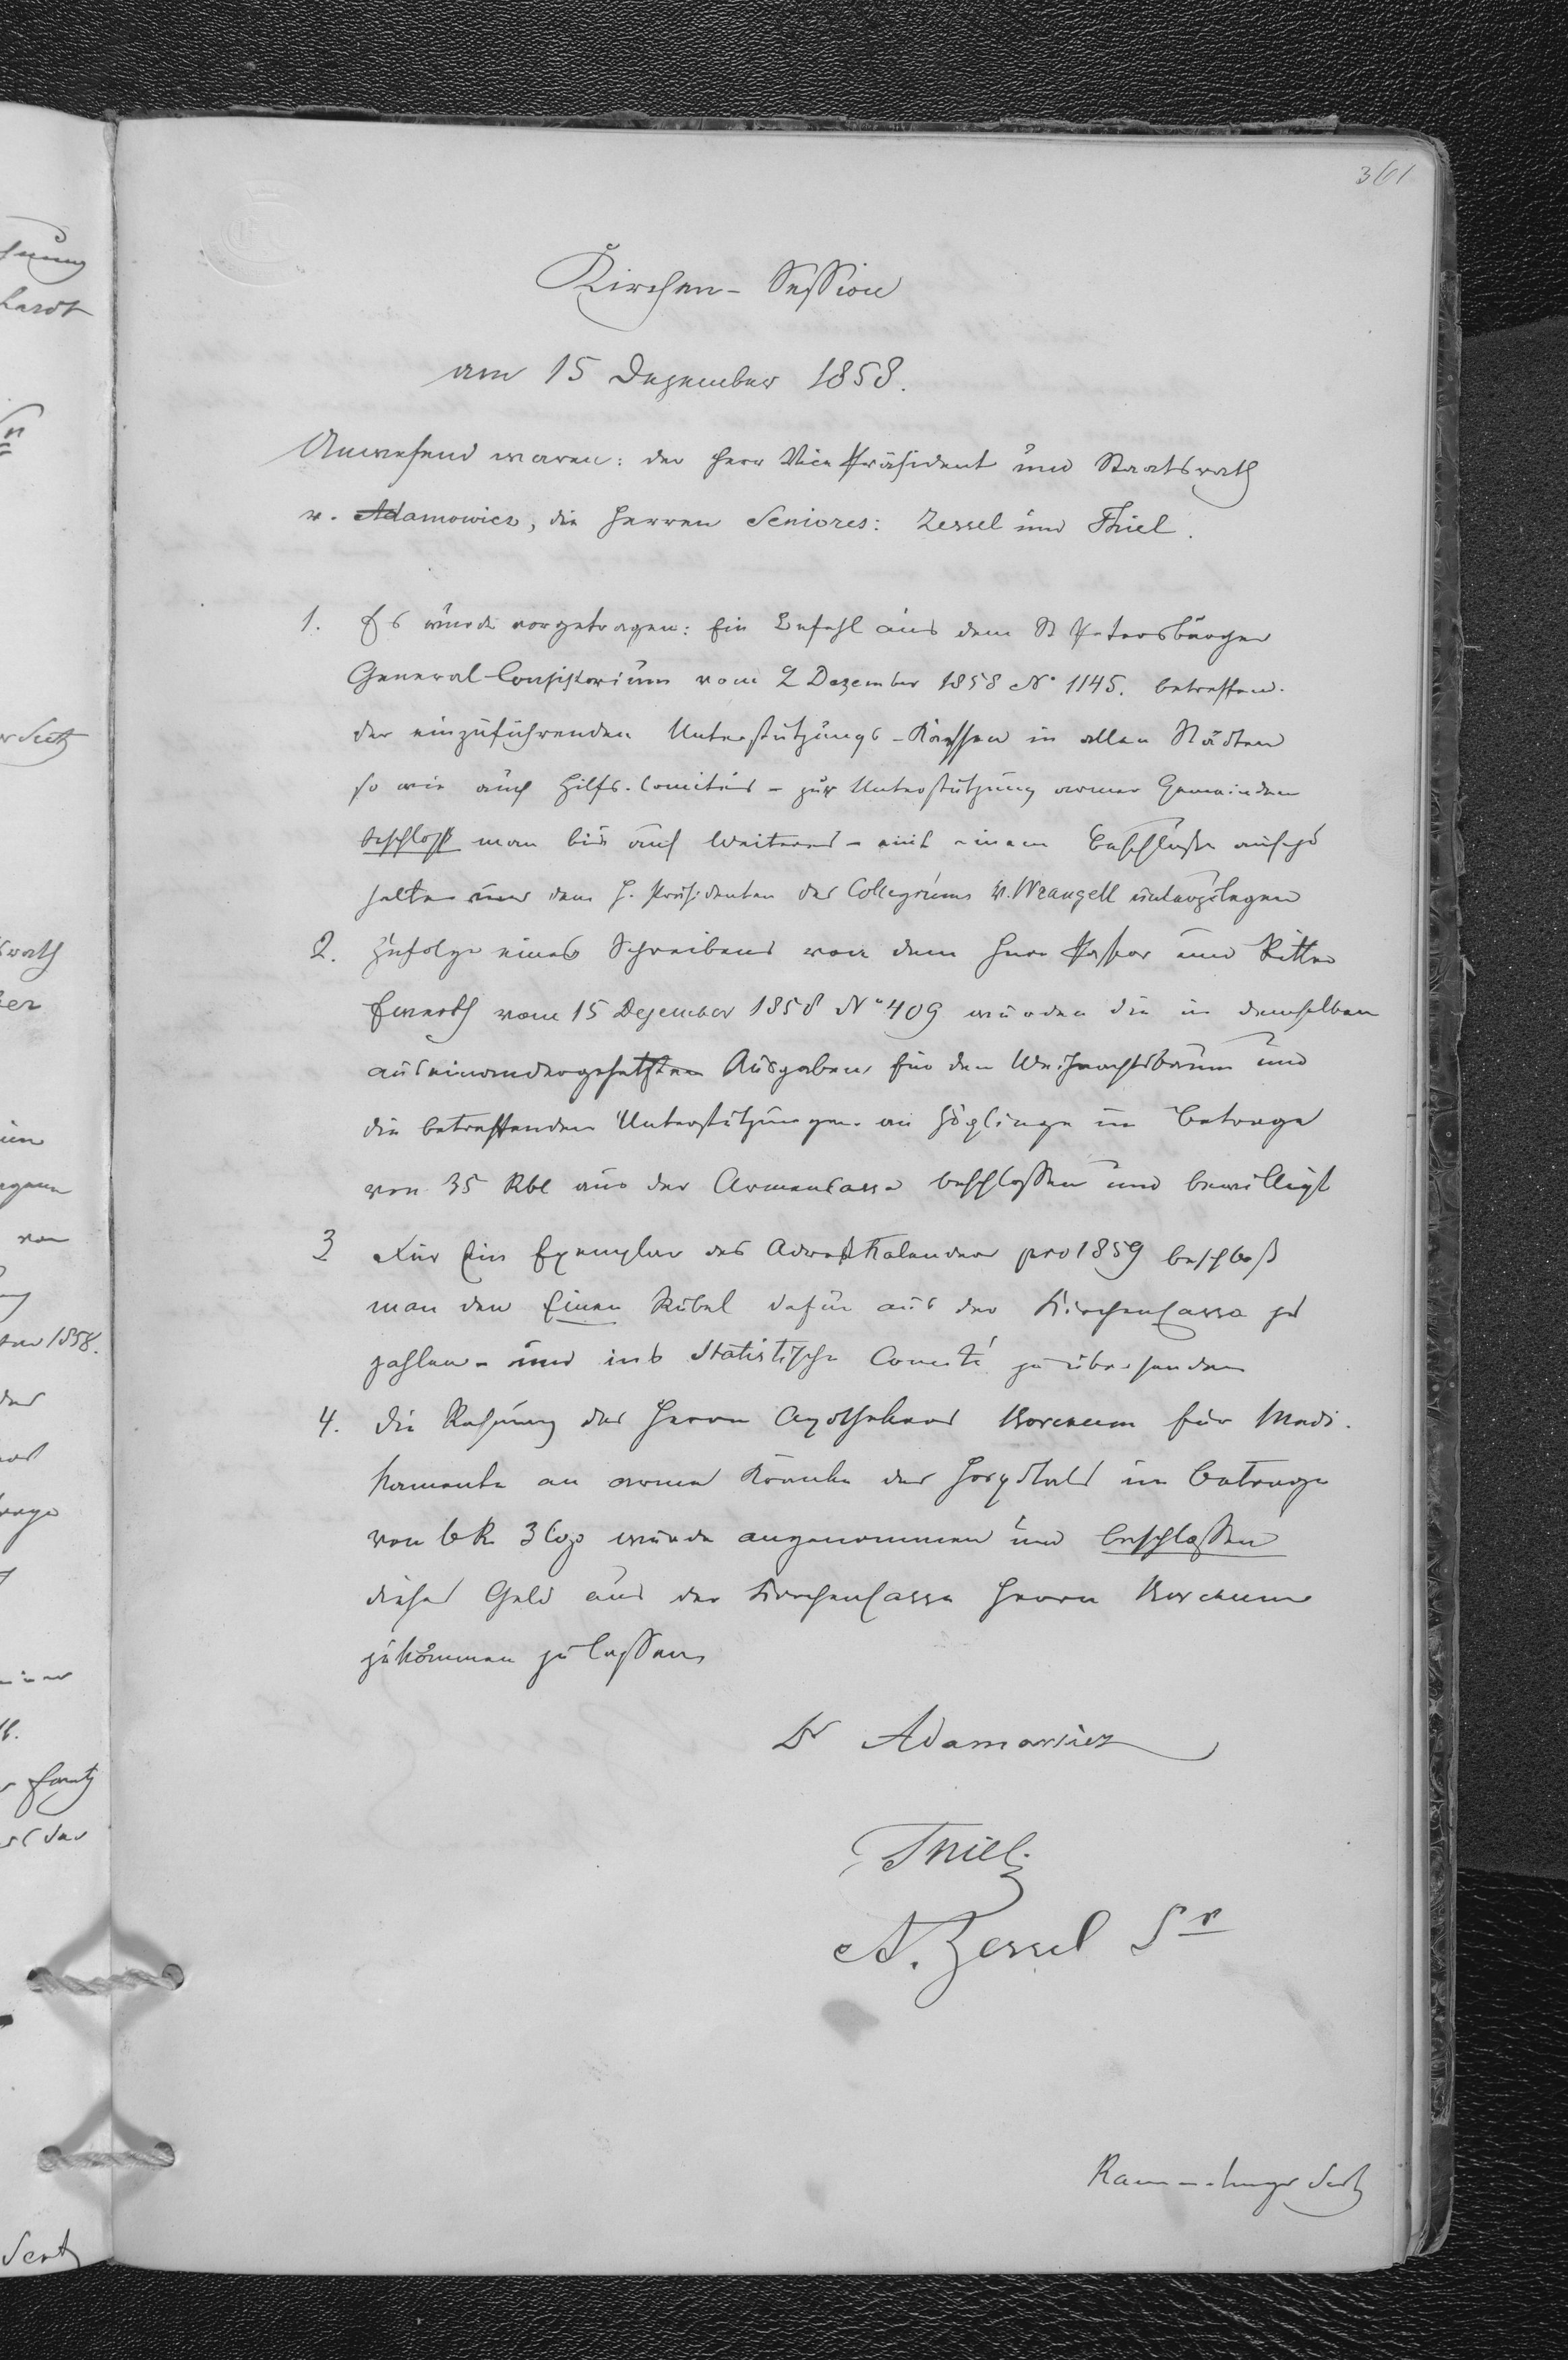 361
Kirchen-Session
am 15 Dezember 1858.
Anwesend waren: der Herr Vice Präsident und Staatsrath
v. Adamowicz, die Herren Seniores: Zessel und Thiel.
1. Es wurde vorgetragen: Ein Befehl aus dem St Petersburger
General-Consistorium vom 2 Dezember 1858 No 1145. betreffend.
der einzuführenden Unterstützungs-Kassen in allen Städten
so wie auch Hilfs-Comités - zur Unterstützung armer Gemeinden
beschloß man bis auf Weiteres - mit einem Beschlusse
halten und dem H. Präsidenten des Collegiums v. Wrangell
2. Zufolge eines Schreibens von dem Herr Pastor und Ritter
vom 15 Dezember 1858 No 409 wurden die in demselben
auseinandergesetzten Ausgaben für den Weihnachtsbaum und
die betreffenden Unterstützungen an Zöglinge im Betrage
von 35 Rbl aus der Armencassa beschlossen und bewilligt
3 Für Ein Exemplar des Adreßkalenders pro 1859 beschloß
man den Einen Rubel dafür aus der Kirchencassa zu
zahlen - und ins Statistische Comité zu übersenden
4. Die Rechnung des Herrn Apothekers für Medi-
kamente an arme Kranke des Hospitals im Betrage
von 6 R. 3 Cop wurde angenommen und beschlossen
dieses Geld aus der Kirchencassa Herrn
zukommen zu lassen
Dr Adamowicz
Thiel
A. Zessel Sr